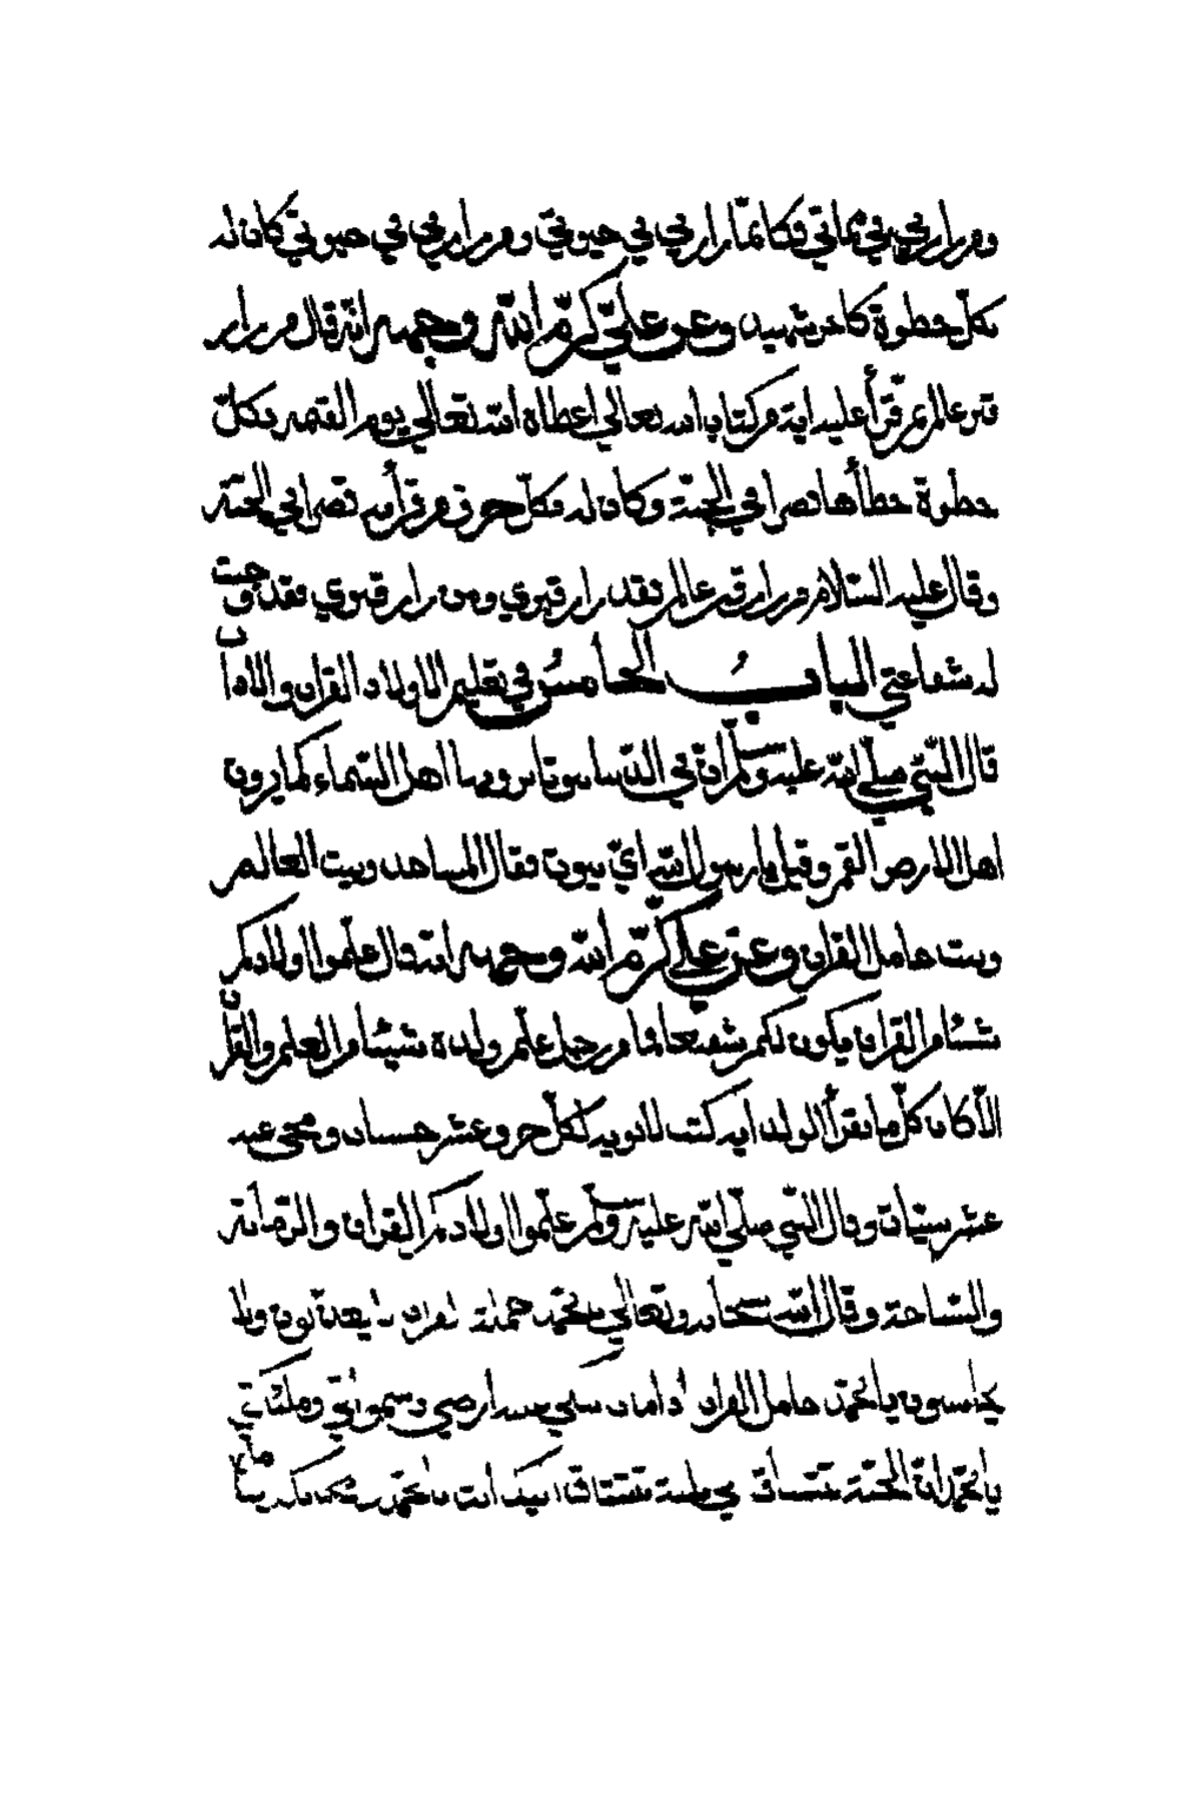 ومن زارني في مماتي فكانما زارني في حيوتي ومن زارني في حيوتي كان له
بكل خطوة كاجر شهيد وعن علي كرم الله وجهه انه قال من زار
قبر عالم ثم قرأ عليه اية من كتاب الله تعالي اعطاه الله تعالي يوم القيمه بكل
خطوة خطأها قصرا في الجنة وكان له بكل حرف من قرأنه قصرا في الجنة
وقال عليه السلام من زار قبر عالم فقد زار قبري ومن زار قبري فقد وجبت
له شفاعتي الباب الخامس في تعليم الاولاد القران والاذان
قال النبي صلي الله عليه وسلم ان في الدنيا بيوتا يرونها اهل السماء كما يرون
اهل الارض القمر وقيل يا رسول الله اي بيوت فقال المساجد وبيت العالم
وبيت حامل القران وعن علي كرم الله وجهه انه قال علموا اولادكم
شيئا من القران يكون لكم شفيعا فما من رجل علم ولده شيئا من العلم والقران
الا كان كل ما يقرأ الولد ايه كتب لابويه لكل حرف عشر حسنات ومحي عنه
عشر سيئات وقال النبي صلي الله عليه وسلم علموا اولادكم القران والرماية
والسباحة وقال الله سبحانه وتعالي يا محمد حملة القران لا يعذبون ولا
يحاسبون يا محمد حامل القران اذا مات بكي عليه ارضي وسمواتي وملئكتي
يا محمد ان الجنة تشتاق الي ثلثة تشتاق اليك انت يا محمد